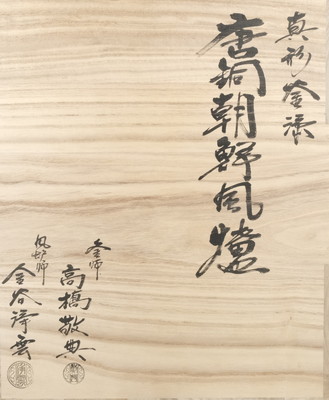 真形釜添
唐銅朝鮮風爐
釜師
高橋敬典
風炉師
金谷浄雲